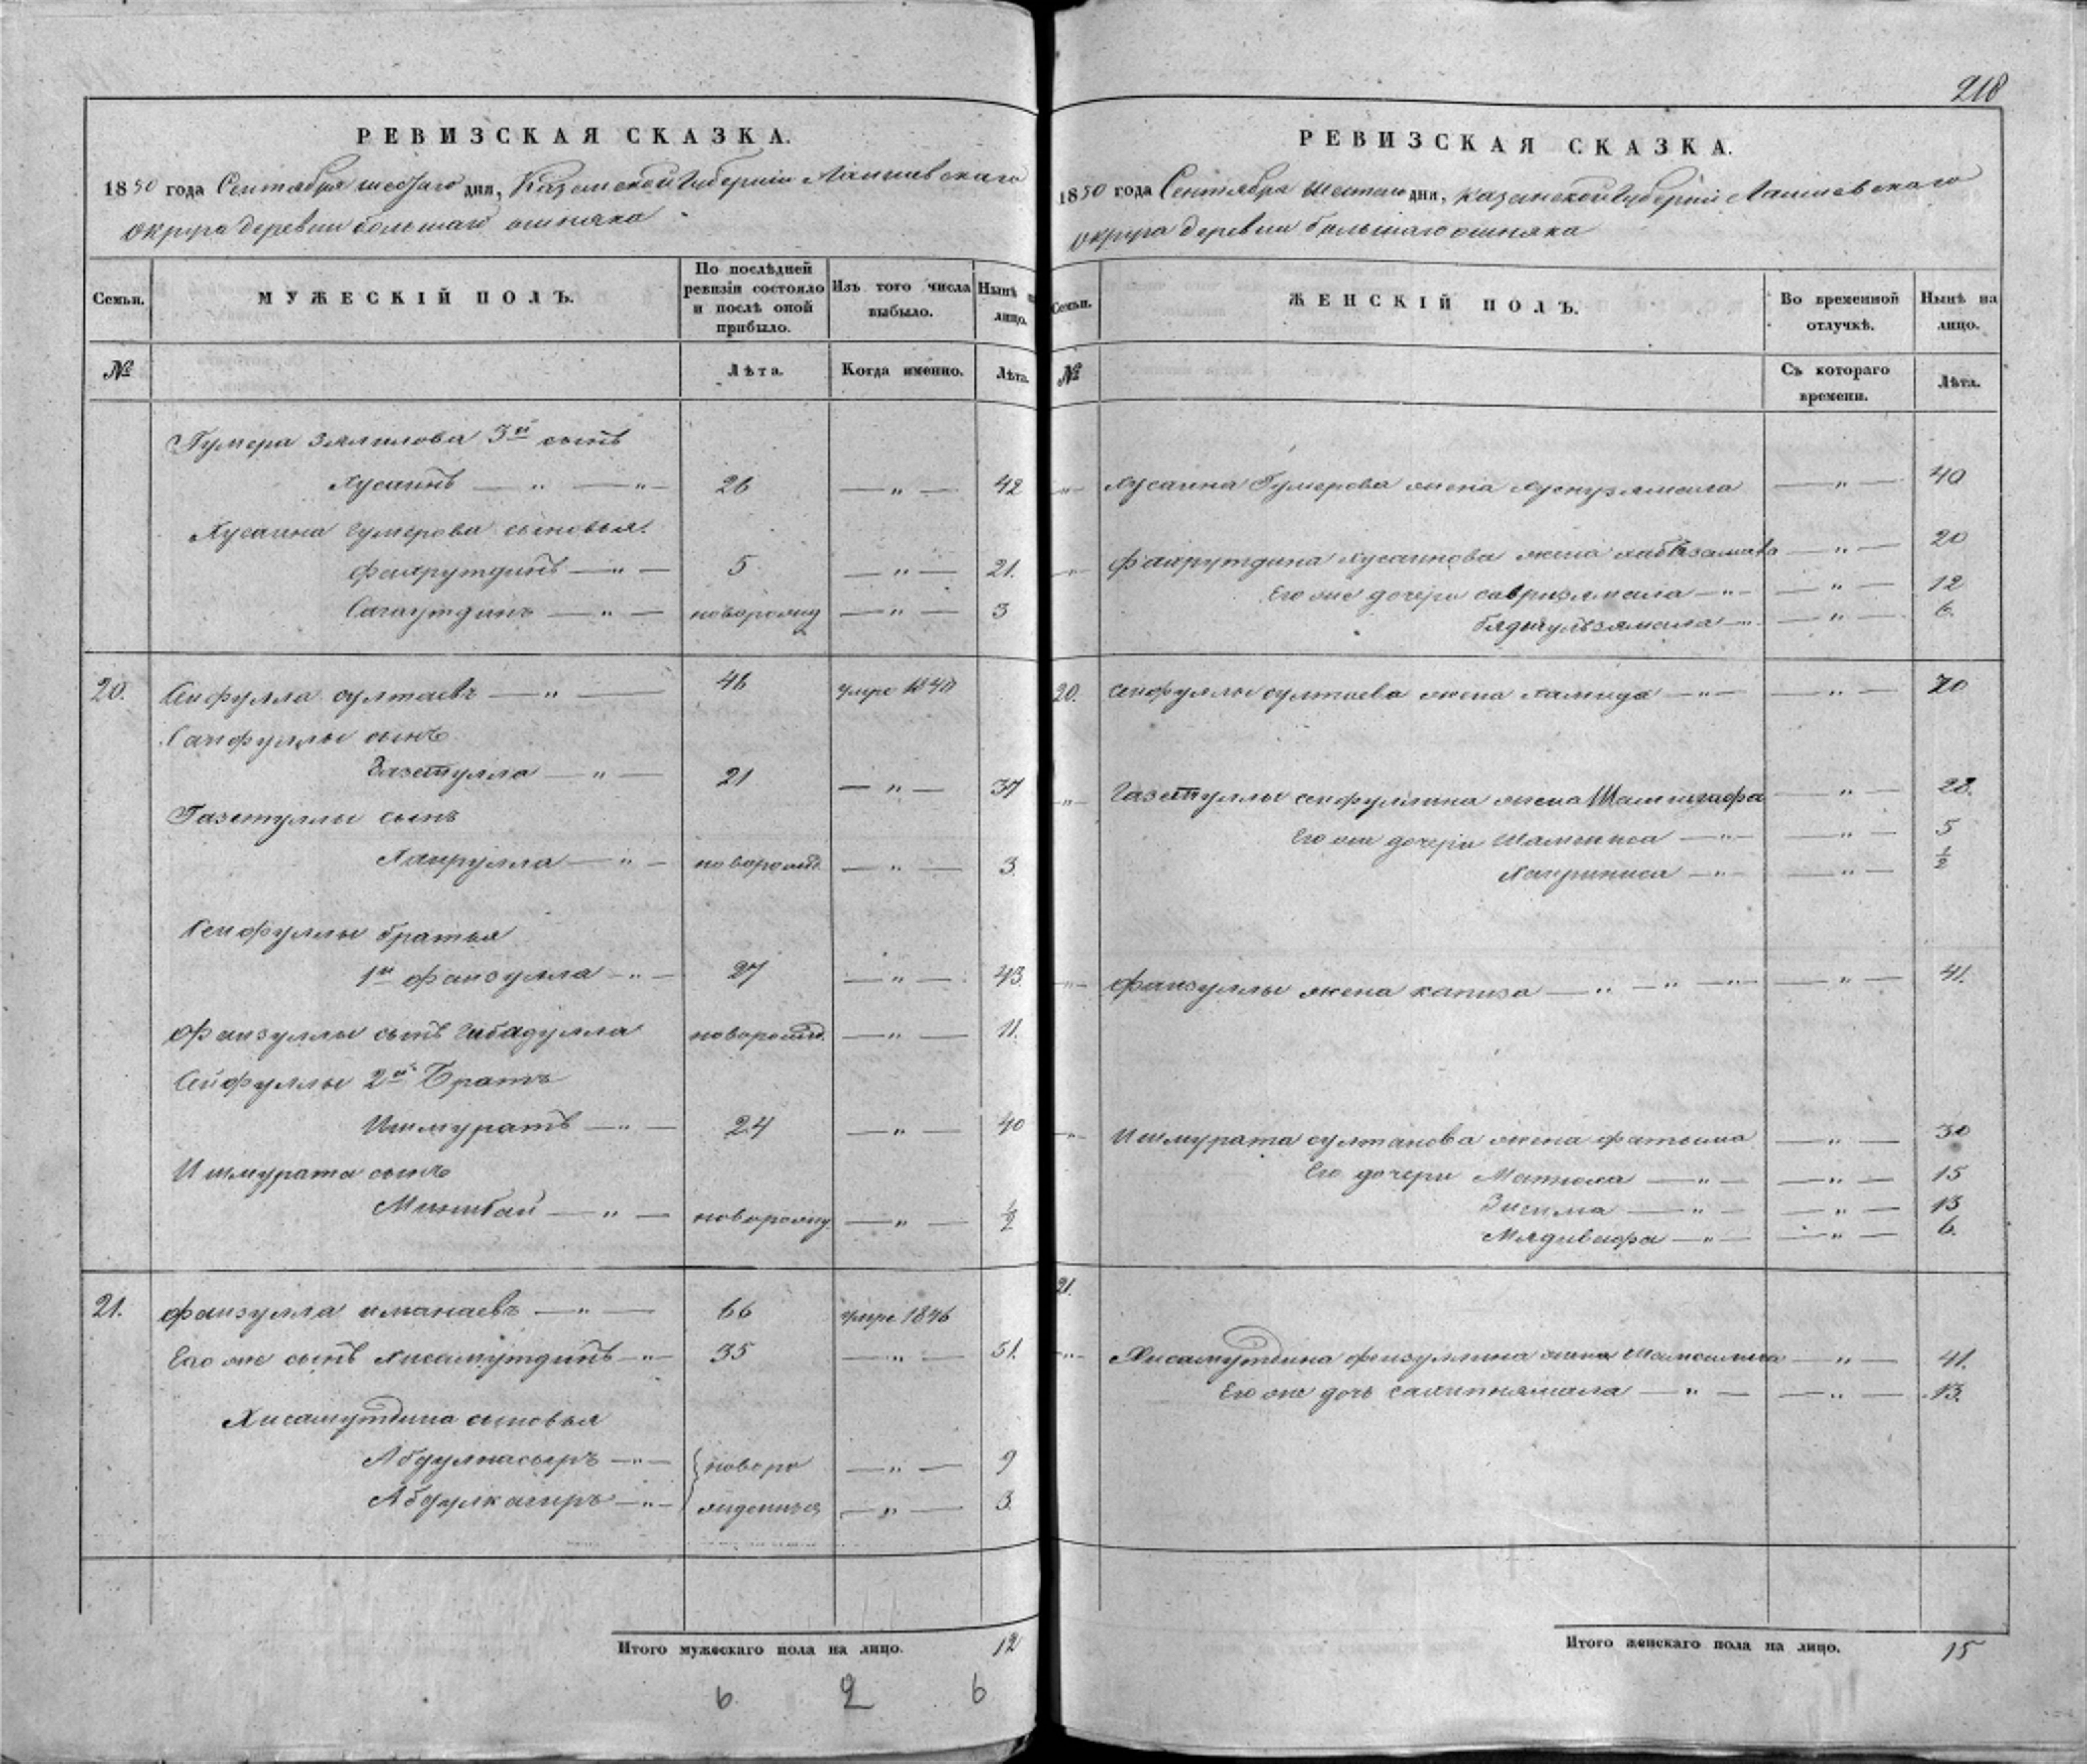 РЕВИЗСКАЯ СКАЗКА.
1850 года Сентября шестаго дня, Казанской Губернии Лаишевскаго
округа деревни большаго ошняка
Семьи.
МУЖЕСКІЙ ПОЛЪ.
По послѣдней ревизіи состояло и послѣ оной прибыло.
Изъ того числа выбыло.
Нынѣ на лицо.
№
Лѣта.
Когда именно.
Лѣта.
Гумера Зялилова 3й сынъ
Хусаинъ — " — " — 26 — " — 42
Хусаина Гумерова сыновья.
Фахрутдинъ — " — 5 — " — 21.
Сагаутдинъ — " — новорожд — " — 3
20. Сейфулла султаевъ — " — 46 умре 1840
Сайфуллы сынъ
Газетулла — " — 21 — " — 37
Газетуллы сынъ
Хайрулла — " — новорожд. — " — 3.
Сейфуллы братья
1й файзулла — " — 27 — " — 43.
файзуллы сынъ Гибадулла новорожд. — " — 11.
Сейфуллы 2й Братъ
Ишмуратъ — " — 24 — " — 40
Ишмурата сынъ
Минибай — " — новорожд. — " — ½
21. файзулла иманаевъ — " — 66 умре 1846
Его же сынъ Хисамутдинъ — " — 35 — " — 51.
Хисамутдина сыновья
Абдулнасыръ — " — новоро — " — 9
Абдулкагиръ — " — жденные — " — 3.
Итого мужескаго пола на лицо. 12
6 2 6
218
РЕВИЗСКАЯ СКАЗКА.
1850 года Сентября шестаго дня, Казанской Губерніи Лаишевскаго
округа деревни большаго ошняка
Семьи.
ЖЕНСКІЙ ПОЛЪ.
Во временной отлучкѣ.
Нынѣ на лицо.
№
Съ котораго времени.
Лѣта.
— " — Хусаина Гумерова жена — " — 40
— " — Фахрутдина Хусаинова жена — " — 20
Его же дочери — " — — " — 12
— " — — " — 6.
20. Сейфуллы султаева жена хамида — " — — " — 70
— " — Газетуллы сейфуллина жена — " — 28.
Его же дочери Шамсиниса — " — — " — 5
Хайриниса — " — — " — ½
— " — файзуллы жена капиза — " — " — " — — " — 41.
— " — Ишмурата султанова жена фатыма — " — 30
Его дочери — " — — " — 15
— " — — " — 13
— " — — " — 6.
21.
— " — Хисамутдина файзуллина жена — " — 41.
Его же дочь — " — — " — 13.
Итого женскаго пола на лицо. 15